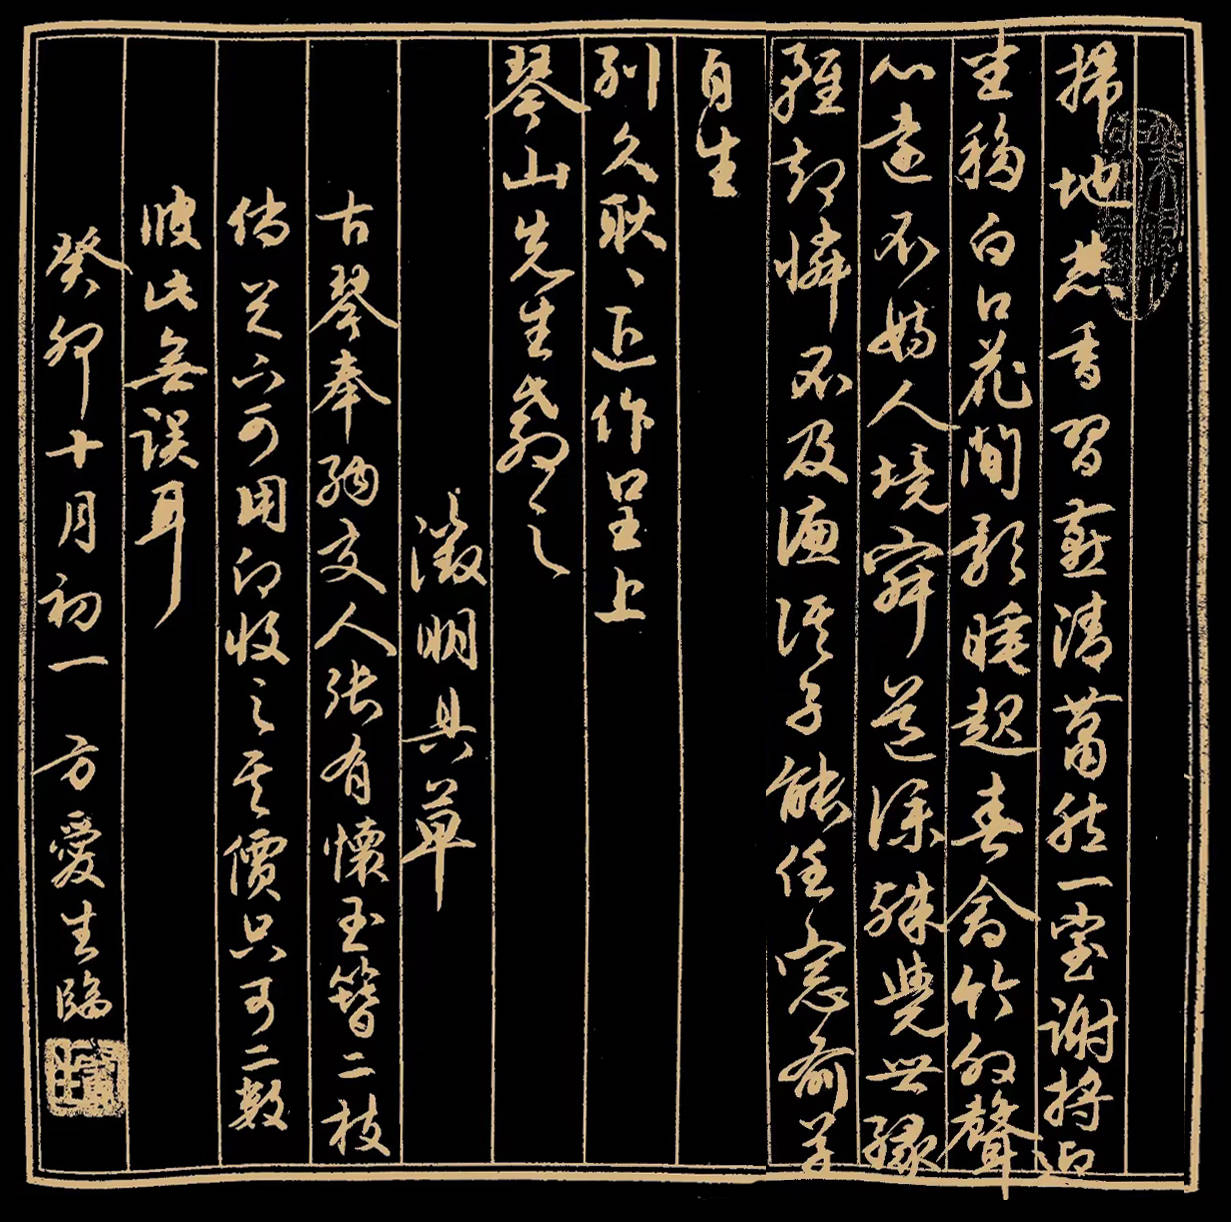 掃地焚香習燕清蕭然一室謝將迎
坐移白日花間影睡起春禽竹外聲
心遠不妨人境寂道深殊覺世緣
輕却憐不及濂溪子能任窓前草
自生
別久耿、近作呈上
琴山先生教之
徵明具草
古琴奉納交人張有懷玉簪二枝
倘可用即收之其價只可二數
彼此無誤耳
癸卯十月初一 方愛生臨